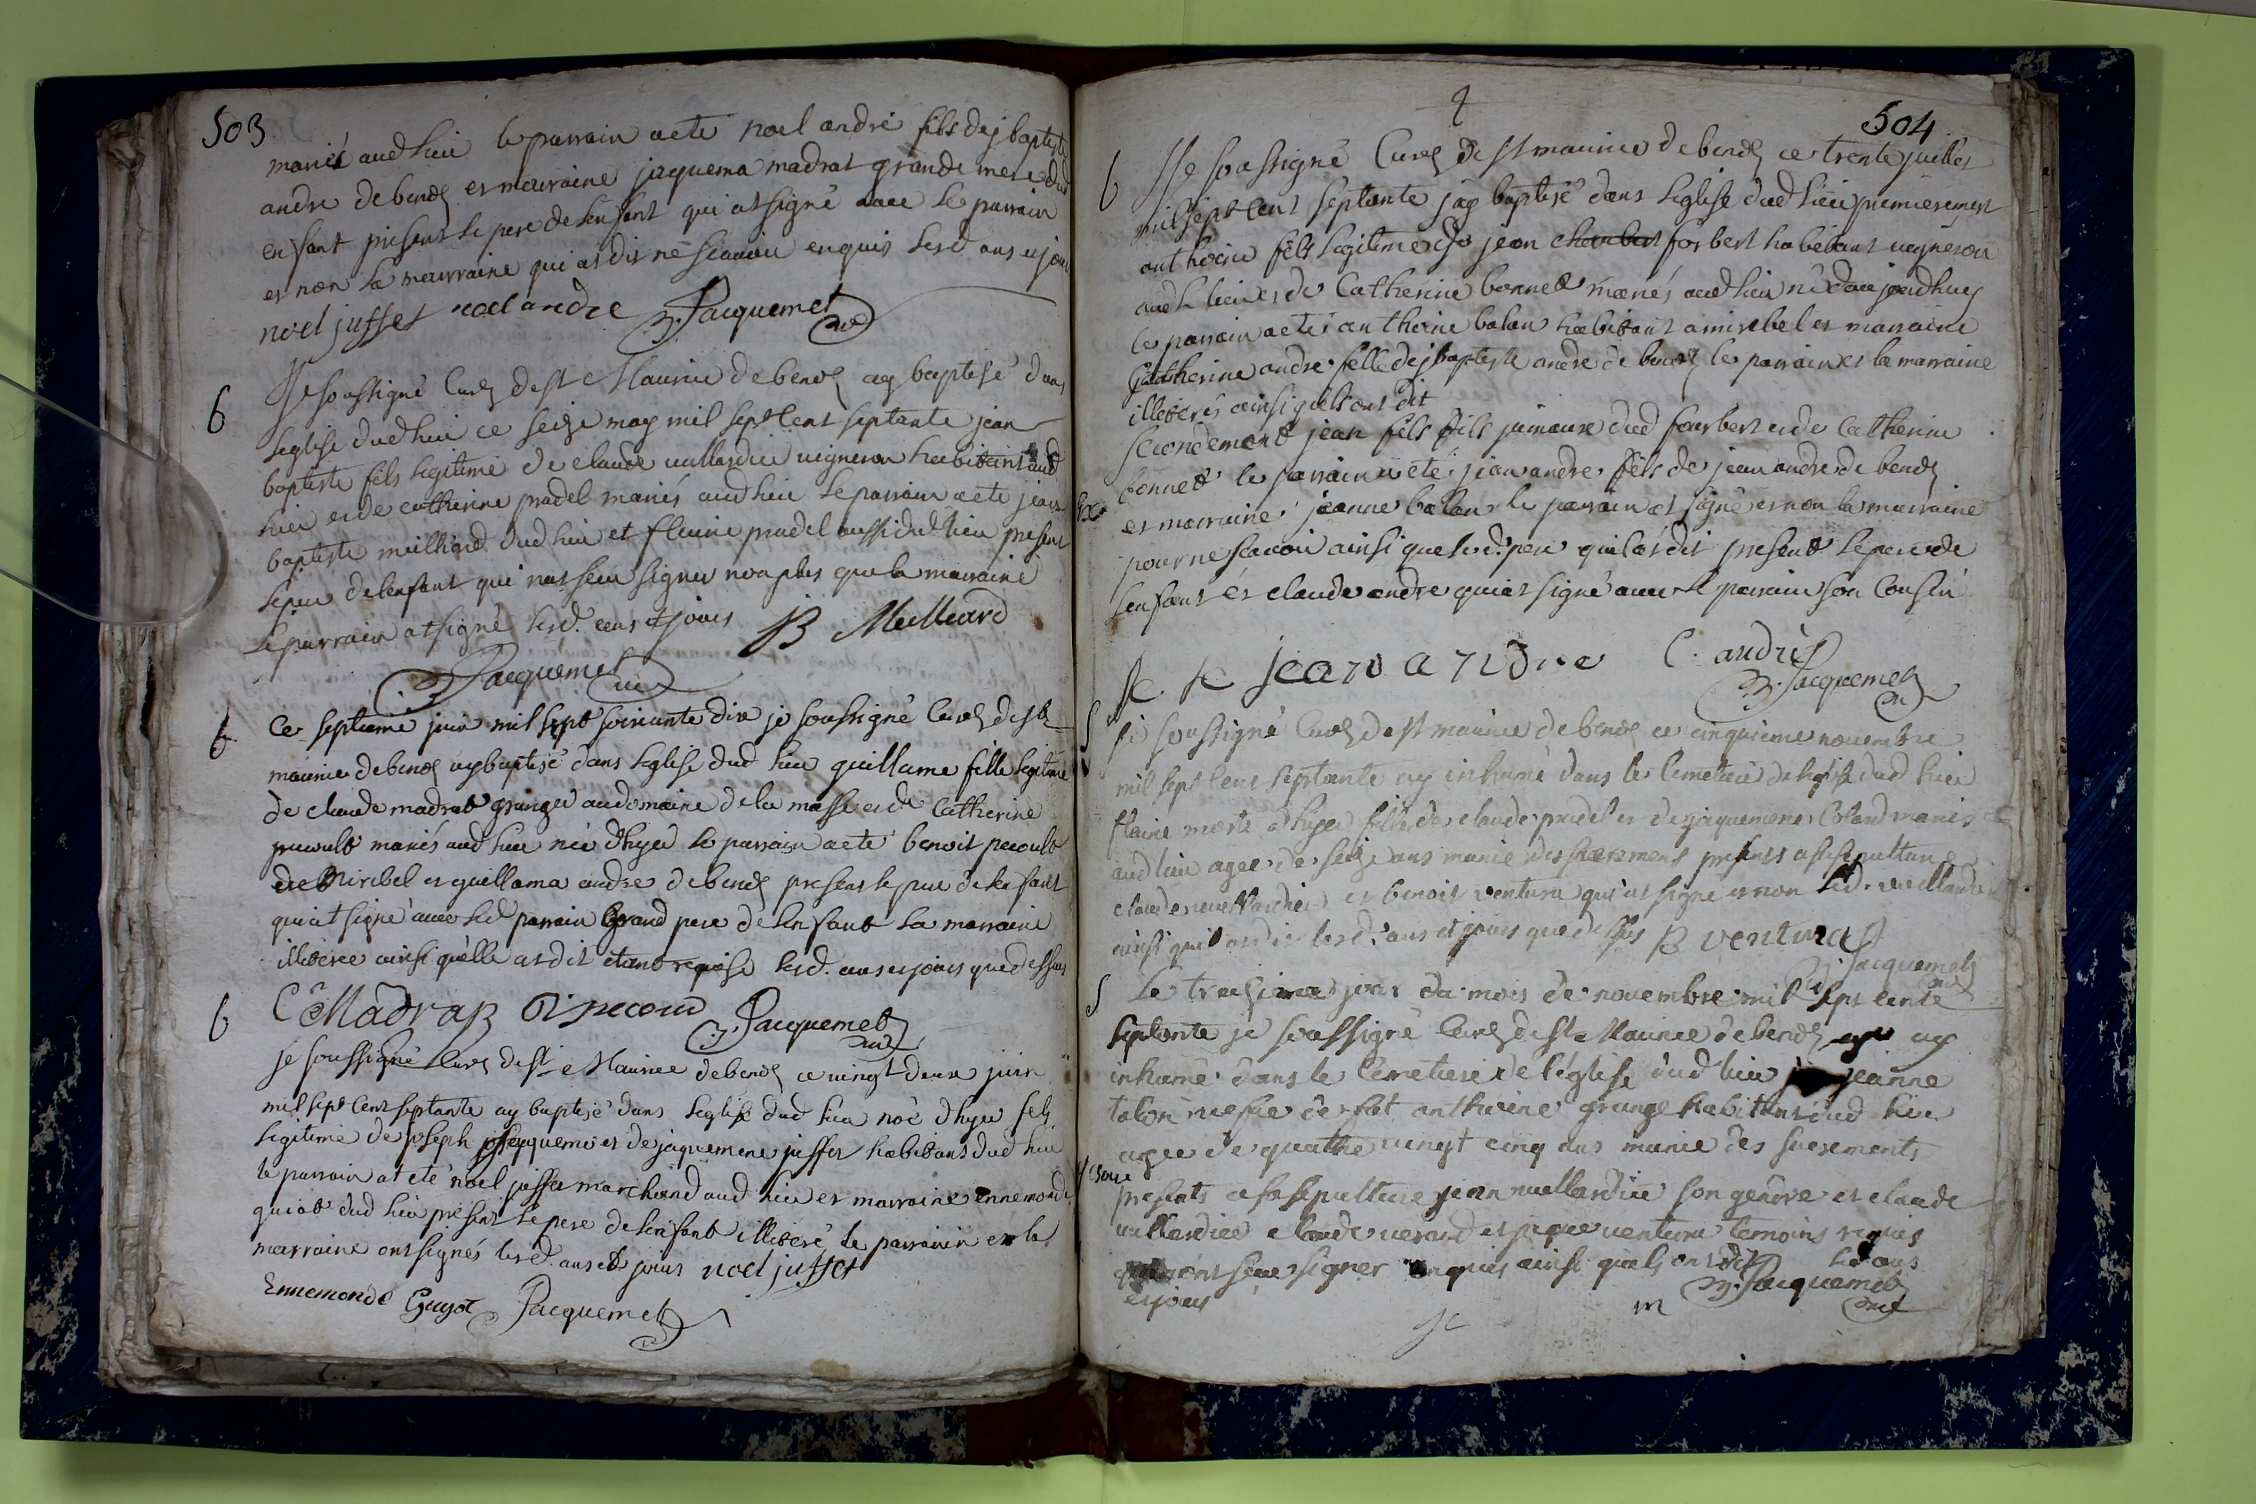 503
marié aud lieu le parrain aeté noel andré fils de j baptiste
andre de benos et marraine jaquema madrat grande mere dud
enfant present le pere de lenfant qui at signé avec le parrain
et non la marraine qui at dit ne scavoir enquis lesd ans et jour
noel juffet noel andre Jacquemet
b
Je soussigné Curé de st Maurice de benos ay baptisé dans
leglise dud lieu ce seize may mil sept Cent septante jean
baptiste fils legitime de claude vullardier vigneron habitant aud
lieu et de catherine pradel mariés aud lieu le parrain aeté jean
baptiste milliard dud lieu et flurie pradel aussi dud lieu present
le pere de lenfant qui nat seu signer non plus que la marraine
le parrain at signé lesd. ans et jours JB Milliard
Jacquemet curé
b
Ce septieme juin mil sept soixante dix je soussigné Curé de st
maurice de benos ay baptisé dans leglise dud lieu guillame fille legitime
de claude madrat granger au domaine de la masse et de Catherine
mariés aud lieu née dhyer le parrain aeté benoit pecoult
de Miribel et guillama andre de benos present le pere de lenfant
qui at signé avec led parrain grand pere de lenfant la marraine
illiterée ainsi quelle at dit etant requise lesd. ans et jours que dessus
C Madrat B pecoud Jacquemet curé
b
je soussigné Curé de st Maurice de benos ce vingt deux juin
mil sept Cent septante ay baptisé dans leglise dud lieu né dhyer fils
legitime de joseph et de jaquemene juffet habitants dud lieu
le parrain at eté noel juffet marchand aud lieu et marraine Ennemonde
guiot dud lieu présent le pere de lenfant illiteré le parrain et la
marraine ont signés lesd. ans et jours noel juffet
Ennemonde Guyot Jacquemet
504
b
Je soussigné Curé de st maurice de benos ce trente juillet
mil sept Cent septante jay baptisé dans leglise dud lieu premierement
anthoine fils legitime de jean forbert habitant vigneron
aud lieu et de Catherine bonnet mariés aud lieu né daujourdhuy
le parrain aeté anthoine balan habitant a miribel et marraine
Catherine andre fille de j baptiste andre de benos le parrain et la marraine
illiterés ainsi quils ont dit
secondement jean fils jumeaux dud fourbert et de Catherine
bonnet le parrain a eté jean andre fils de jean andre de benos
et marraine jeanne balan le parrain at signé et non la marraine
pour ne scavoir ainsi que led. pere qui lat dit present le pere de
lenfant et claude andre qui at signé avec le parrain son Cousin
jean andre C. andré
Jacquemet curé
S
je soussigné Curé de st maurice de benos ce cinquieme novembre
mil sept Cent septante ay inhumé dans le Cemetiere de leglise dud lieu
flurie morte dhyer fille de claude pradel et de jaquemene Coland mariés
aud lieu agée de seize ans munie des sacrements presents a sa sepulture
claude vullardier et benoit ventura qui at signé et non led. vullardier
ainsi quil at dit lesd. ans et jours que dessus B ventura
Jacquemet curé
S
Le treizieme jour du mois de novembre mil sept cent
septante je soussigné Curé de st Maurice de benos ay
inhumé dans le Cemetiere de léglise dud lieu jeanne
talon de fut anthoine grange habitant dud lieu
agée de quatre vingt cinq ans munie des sacrements
presents a sa sepulture jean vullardier son gendre et claude
vullardier claude verand et pierre ventura temoins requis
seu signer enquis ainsi quils ont dit led ans
et jours Jacquemet curé